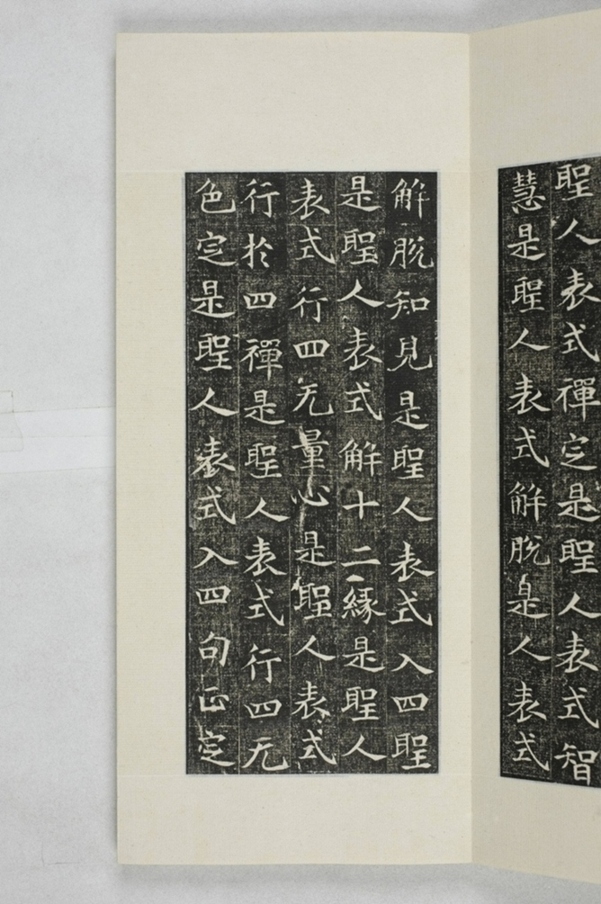 聖人表式禪定是聖人表式智
慧是聖人表式解脫是人表式
解脫知見是聖人表式入四聖
是聖人表式解十二緣是聖人
表式行四无量心是聖人表式
行於四禪是聖人表式行四无
色定是聖人表式入四句正定